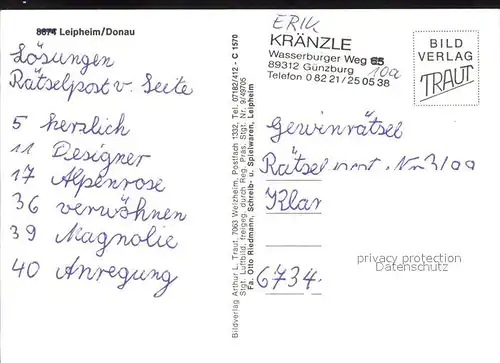 8874 Leipheim/Donau
Lösungen
Rätselpost v. Seite
5 herzlich
11 Designer
17 Alpenrose
36 verwöhnen
39 Magnolie
40 Anregung
Bildverlag Arthur L. Traut, 7063 Welzheim, Postfach 1332, Tel. 07182/412 - C 1570
Stgt. Luftbild, freigeg. durch Reg. Präs. Stgt. Nr. 9/49705
Fa. Otto Riedmann, Schreib- u. Spielwaren, Leipheim
ERIK
KRÄNZLE
Wasserburger Weg 65
10a
89312 Günzburg
Telefon 0 82 21/25 05 38
BILD
VERLAG
TRAUT
Gewinrätsel
Rätselpost Nr 3/99
Klar
6734
privacy protection
Datenschutz